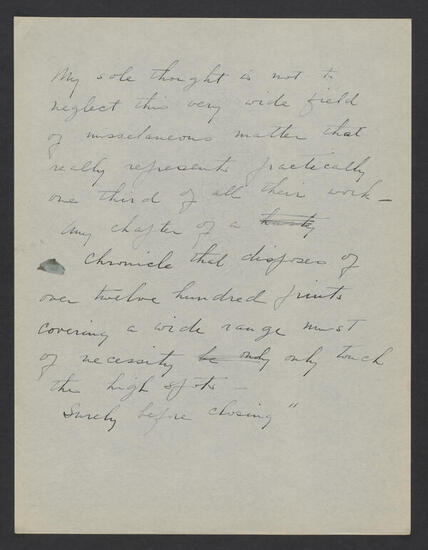 My sole thought is not to
neglect this very wide field
of misselaneous matter that
really represents practically
one third of all their work –
Any chapter of a hasty
Chronicle that disposes of
over twelve hundred prints
covering a wide range must
of necessity be only only touch
the high spots –
Surely before closing"